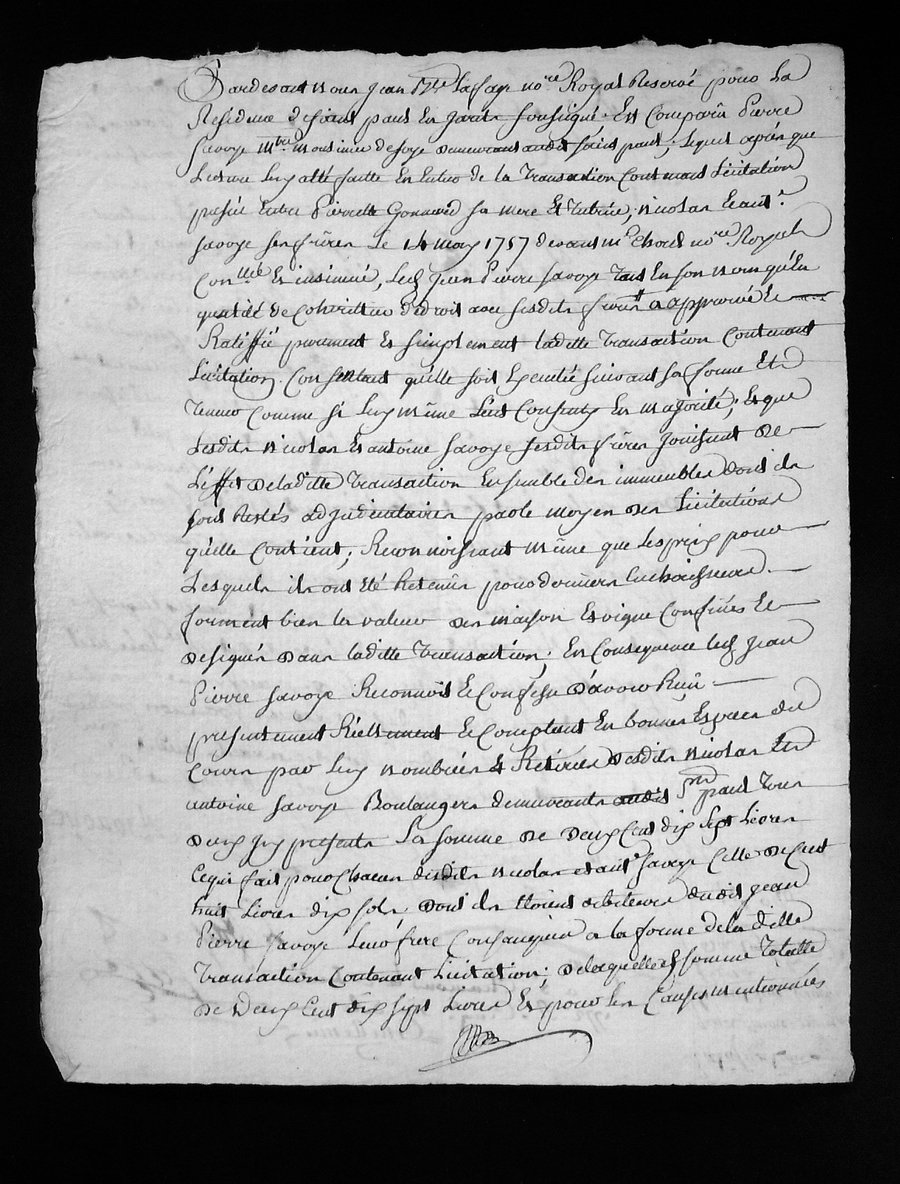 Pardevant nous Jean Bte Lafay nore Royal Reservé pour La
Residence de saint paul En Jarets soussigné. Est Comparû Pierre
Savoye Mtre Mousinier de soye demeurant audit saint paul; Lequel après que
Lecture luy a été faitte En Entier de la Transaction Contenant Licitation
passée Entre Pierrette sa mere Et Tutrice, Nicolas Et antne
savoye ses frères Le 14 may 1757 devant Me nore Royal
Conllée Et insinuée, Led Jean Pierre savoye tant En son nom qu'En
qualité de Cohéritier de droit avec sesdits frères a approuvé Et
Ratiffié purement Et simplement laditte Transaction Contenant
Licitation. Consentant qu'elle soit Exécutée suivant sa forme Et
Teneur Comme si luy même L'eut Consenty En majorité; Et que
Lesdits Nicolas Et antoine savoye sesdits frères Jouissent de
L'effet de laditte Transaction Ensemble des immeubles dont ils
sont Restés adjudicataires par le moyen des Licitations
qu'elle Contient, Reconnoissant même que Les prix pour
Lesquels ils ont été Retenûs pour derniers Encherisseurs
forment bien la valeur des maison Et vigne Confinés Et
désignés dans laditte Transaction; En Consequence led Jean
Pierre savoye Reconnoit Et Confesse d'avoir Reçû
présentement Réellement Et Comptant En bonnes Espèces du
Cours par luy nombrées Et Retirées desdits Nicolas Et
antoine savoye Boulangers demeurants audit St paul Tous
Deux Icy presents La somme de Deux Cent dix sept Livres
Ce qui fait pour Chacun desdits Nicolas et ant. savoye Celle de Cent
huit Livres dix sols, dont ils Etoient débiteurs dudit Jean
Pierre savoye Leur frère Consanguin a la forme de la ditte
Transaction Contenant Licitation; de laquelle somme Totalle
de Deux Cent dix sept Livres Et pour les Causes mentionnées